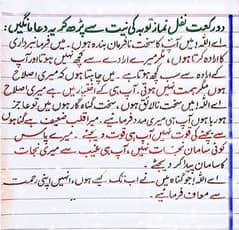 دو رکعت نفل نماز توبہ کی نیت سے پڑھ کر یہ دعا مانگیں:
اے اللہ! میں آپ کا سخت نافرمان بندہ ہوں۔ میں فرمانبرداری
کا ارادہ کرتا ہوں، مگر میرے ارادے سے کچھ نہیں ہوتا اور آپ
کے ارادہ سے سب کچھ ہوتا ہے۔ میں چاہتا ہوں کہ میری اصلاح
ہو مگر ہمت نہیں ہوتی۔ آپ ہی کے اختیار میں ہے میری اصلاح
اے اللہ! میں سخت نالائق ہوں، سخت گناہ گار ہوں، میں تو عاجز
ہو رہا ہوں آپ ہی میری مدد فرمائیے۔ میرا قلب ضعیف ہے گناہوں
سے بچنے کی قوت نہیں آپ ہی قوت دیجئے۔ میرے پاس
کوئی سامان نجات نہیں، آپ ہی غیب سے میری نجات
کا سامان پیدا کر دیجئے۔
اے اللہ! جو گناہ میں نے اب تک کیے ہوں، انہیں اپنی رحمت
سے معاف فرمائیے۔